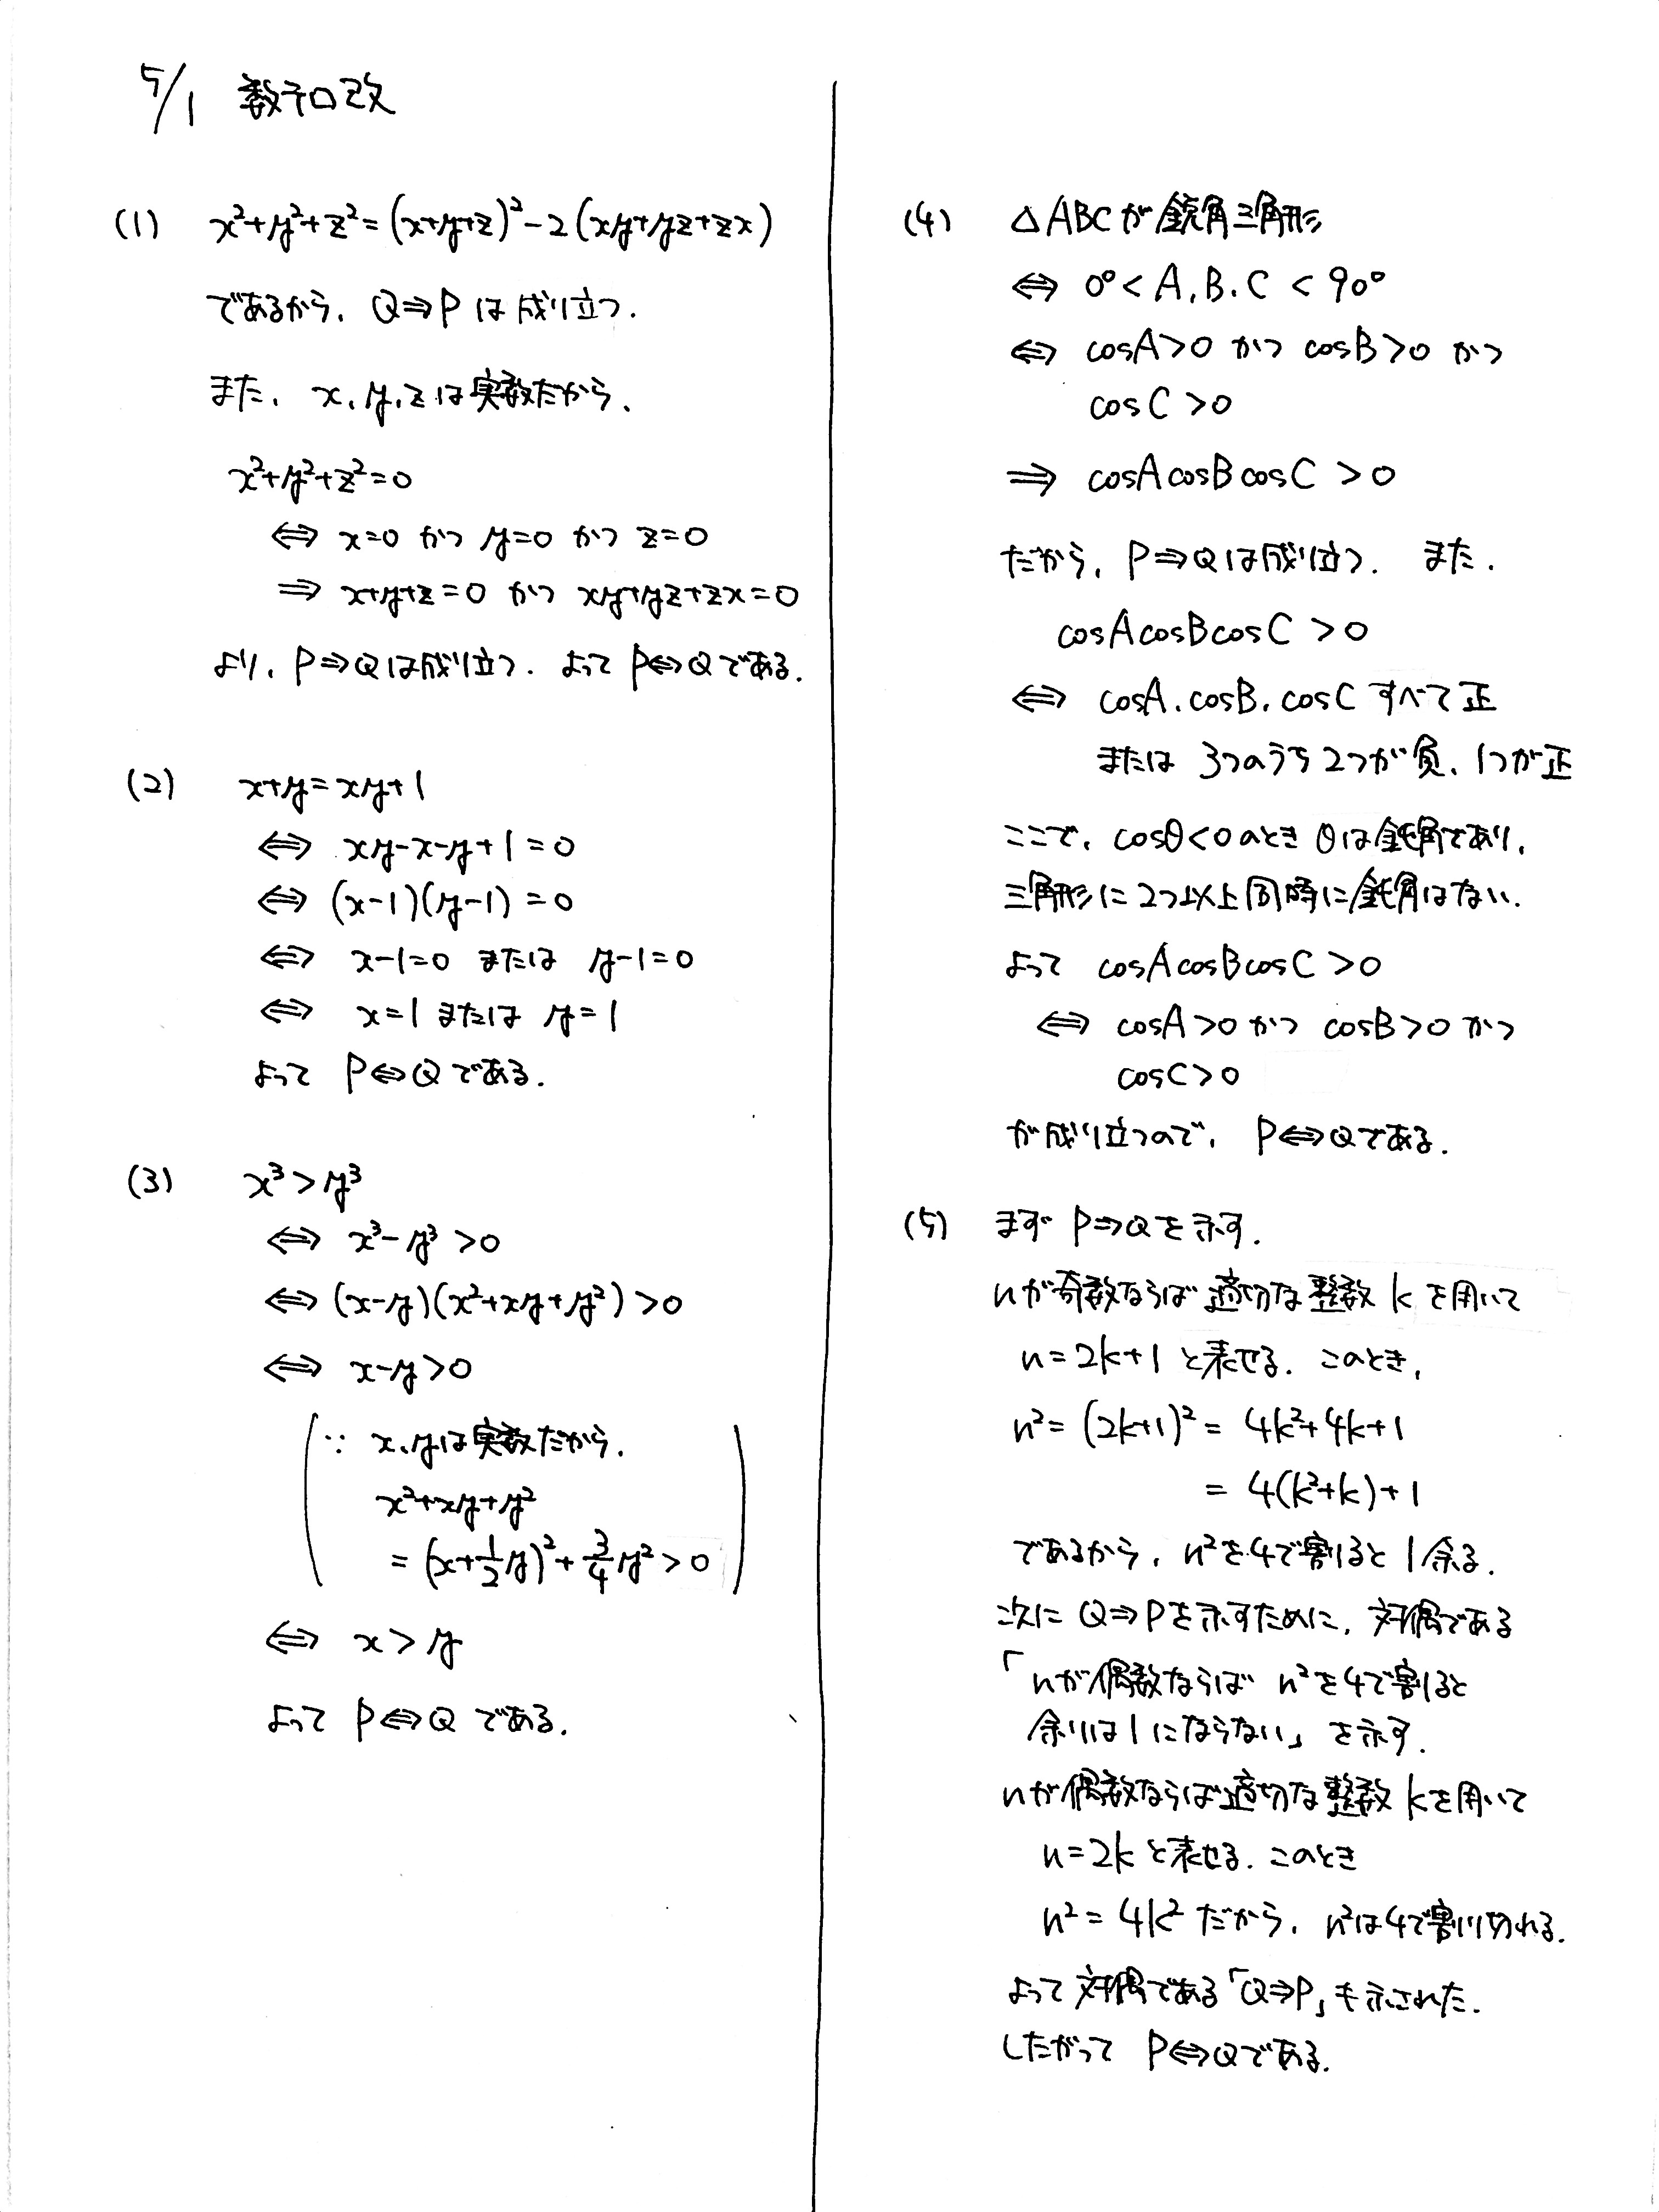 5/1 数チロ改
(1) x²+y²+z²=(x+y+z)²-2(xy+yz+zx)
であるから, Q⇒P は成り立つ.
また, x, y, z は実数だから,
x²+y²+z²=0
⇔ x=0 かつ y=0 かつ z=0
⇒ x+y+z=0 かつ xy+yz+zx=0
より, P⇒Qは成り立つ. よって P⇔Qである.
(2) x+y=xy+1
⇔ xy-x-y+1=0
⇔ (x-1)(y-1)=0
⇔ x-1=0 または y-1=0
⇔ x=1 または y=1
よって P⇔Qである.
(3) x³>y³
⇔ x³-y³>0
⇔ (x-y)(x²+xy+y²)>0
⇔ x-y>0
(∵ x, yは実数だから,
x²+xy+y²
=(x+1/2y)²+3/4y²>0)
⇔ x>y
よって P⇔Q である.
(4) △ABCが鋭角三角形
⇔ 0°<A, B, C<90°
⇔ cosA>0 かつ cosB>0 かつ
cosC>0
⇒ cosAcosBcosC>0
だから, P⇒Qは成り立つ. また,
cosAcosBcosC>0
⇔ cosA, cosB, cosC すべて正
または 3つのうち2つが負, 1つが正
ここで, cosθ<0のとき θは鈍角であり,
三角形に2つ以上同時に鈍角はない.
よって cosAcosBcosC>0
⇔ cosA>0かつ cosB>0かつ
cosC>0
が成り立つので, P⇔Qである.
(5) まず P⇒Qを示す.
nが奇数ならば適切な整数kを用いて
n=2k+1と表せる. このとき,
n²=(2k+1)²=4k²+4k+1
=4(k²+k)+1
であるから, n²を4で割ると1余る.
次に Q⇒Pを示すために, 対偶である
「nが偶数ならば n²を4で割ると
余りは1にならない」を示す.
nが偶数ならば適切な整数kを用いて
n=2kと表せる. このとき
n²=4k²だから, n²は4で割り切れる.
よって対偶である「Q⇒P」も示された.
したがって P⇔Qである.